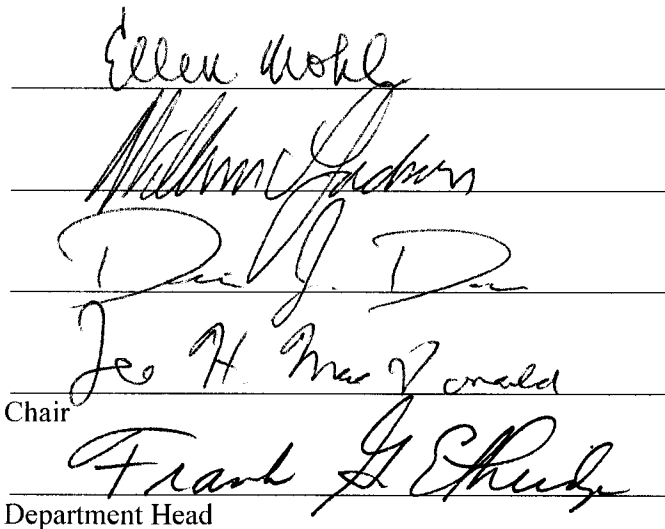 Ellen Wohl
William Jackson
D J. D
Lee H. MacDonald
Chair
Frank G Ethridge
Department Head